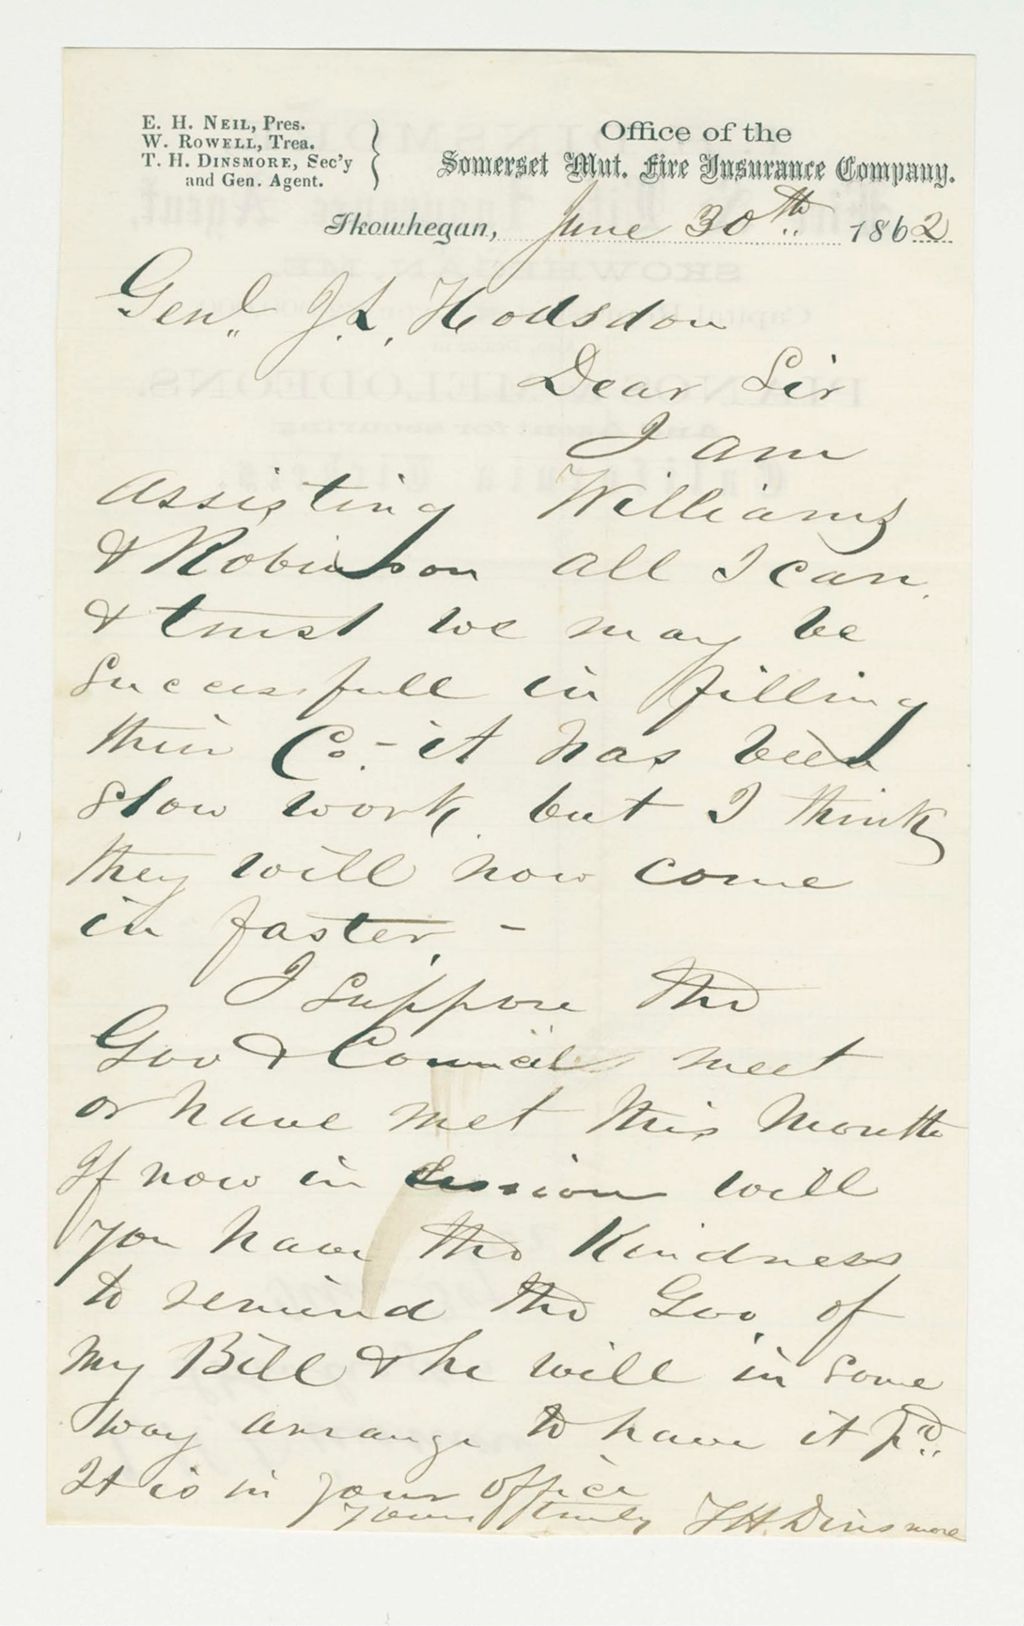 E. H. Neil, Pres.
W. Rowell, Trea.
T. H. Dinsmore, Sec'y
and Gen. Agent.
Office of the
Somerset Mut. Fire Insurance Company.
Skowhegan, June 30th 1862
Genl. J. L. Hodsdon
Dear Sir
I am
assisting Williams
& Robinson all I can.
& trust we may be
successfull in filling
their Co. - it has been
slow work, but I think
they will now come
in faster, -
I suppose the
Gov & Council meet
or have met this Month
If now in session will
you have the Kindness
to remind the Gov. of
my Bill & he will in some
way arrange to have it pd.
It is in your office
Yours truly T. H. Dinsmore